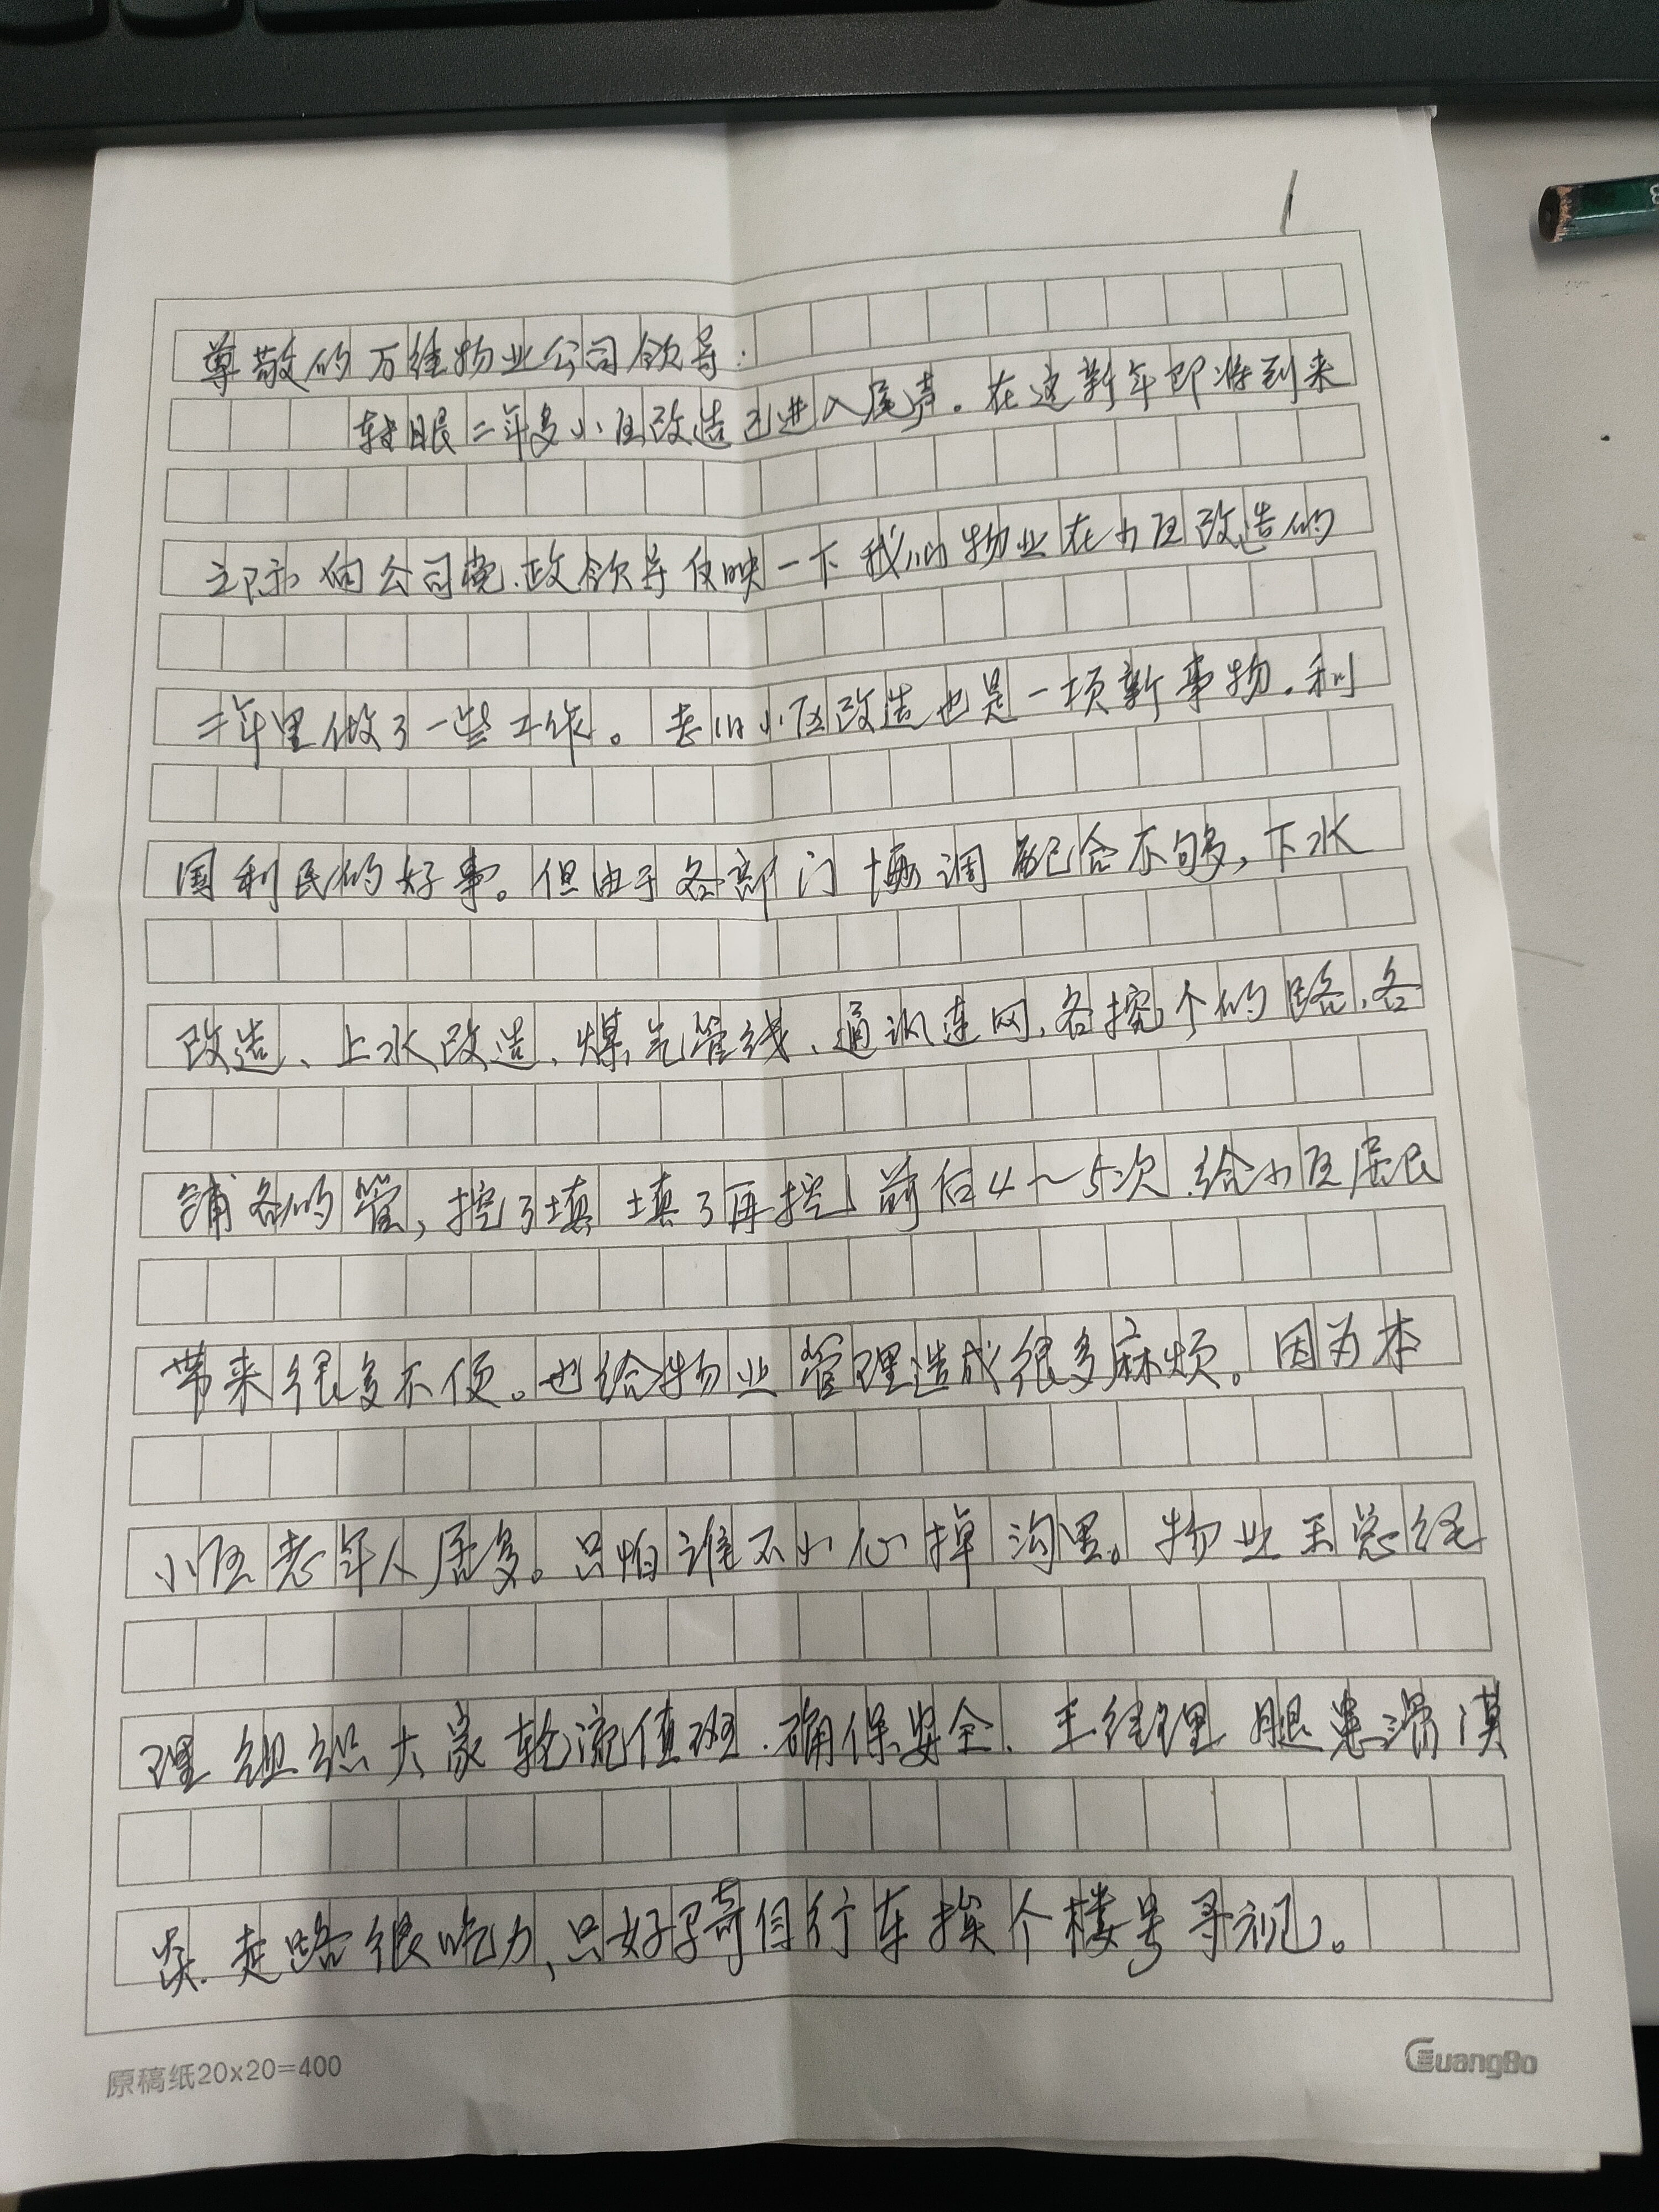 1
尊敬的万维物业公司领导:
转眼二年多小区改造已进入尾声。在这新年即将到来
之际向公司党.政领导反映一下我们物业在小区改造的
二年里做了一些工作。老旧小区改造也是一项新事物.利
国利民的好事。但由于各部门协调配合不够,下水
改造、上水改造、煤气管线、通讯连网、各挖个的路、各
铺各的管,挖了填 填了再挖,前后4～5次.给小区居民
带来很多不便。也给物业管理造成很多麻烦。因为本
小区老年人居多。只怕谁不小心掉沟里。物业王总经
理组织大家轮流值班.确保安全、王经理腿患滑膜
炎.走路很吃力,只好骑自行车挨个楼号寻视。
原稿纸20x20=400
GuangBo